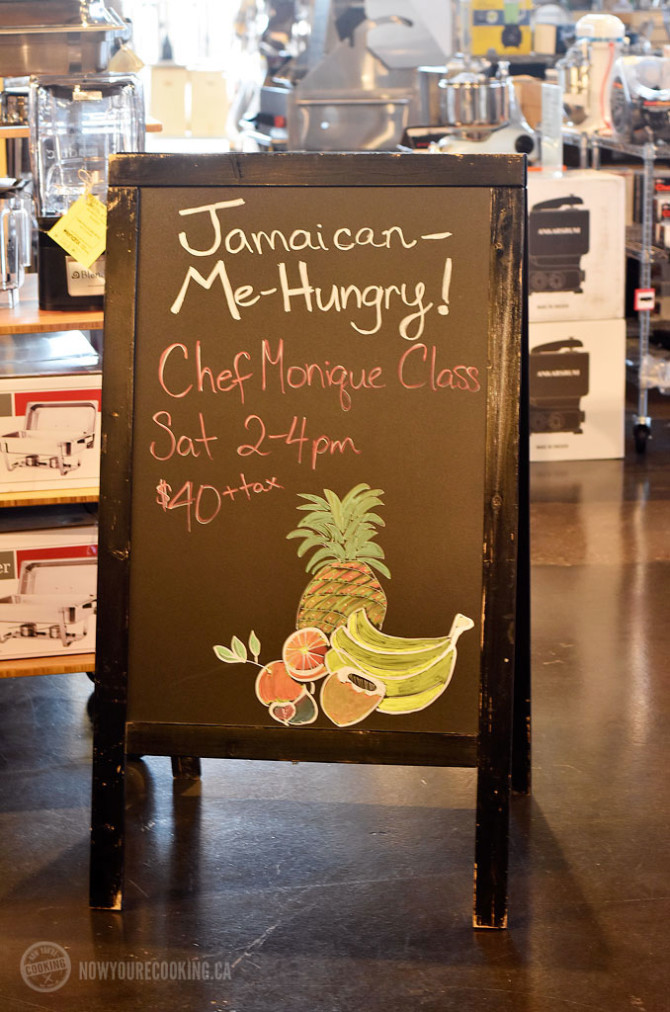 Jamaican-
Me-Hungry!
Chef Monique Class
Sat 2-4pm
$40 + tax
ANKARSRUM
ANKARSRUM
COOKING
NOWYOURECOOKING.CA